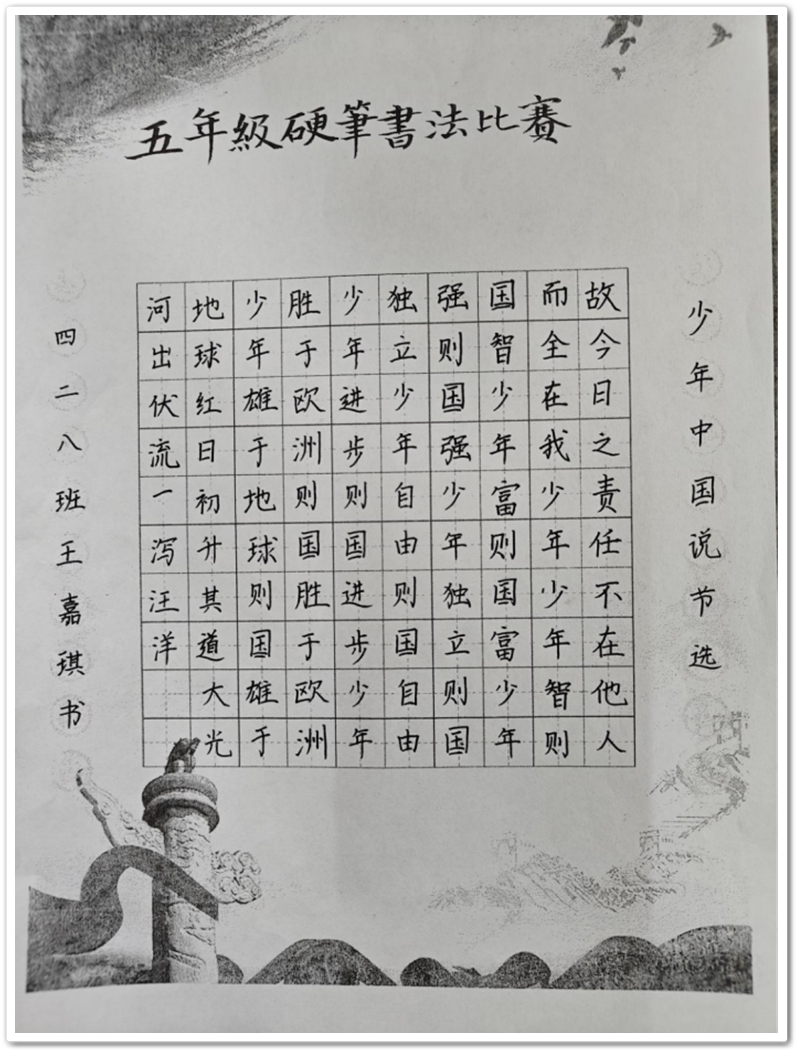 五年級硬筆書法比賽
少年中国说节选
故今日之责任不在他人
而全在我少年少年智则
国智少年富则国富少年
强则国强少年独立则国
独立少年自由则国自由
少年进步则国进步少年
胜于欧洲则国胜于欧洲
少年雄于地球则国雄于
地球红日初升其道大光
河出伏流一泻汪洋
四二八班王嘉琪书